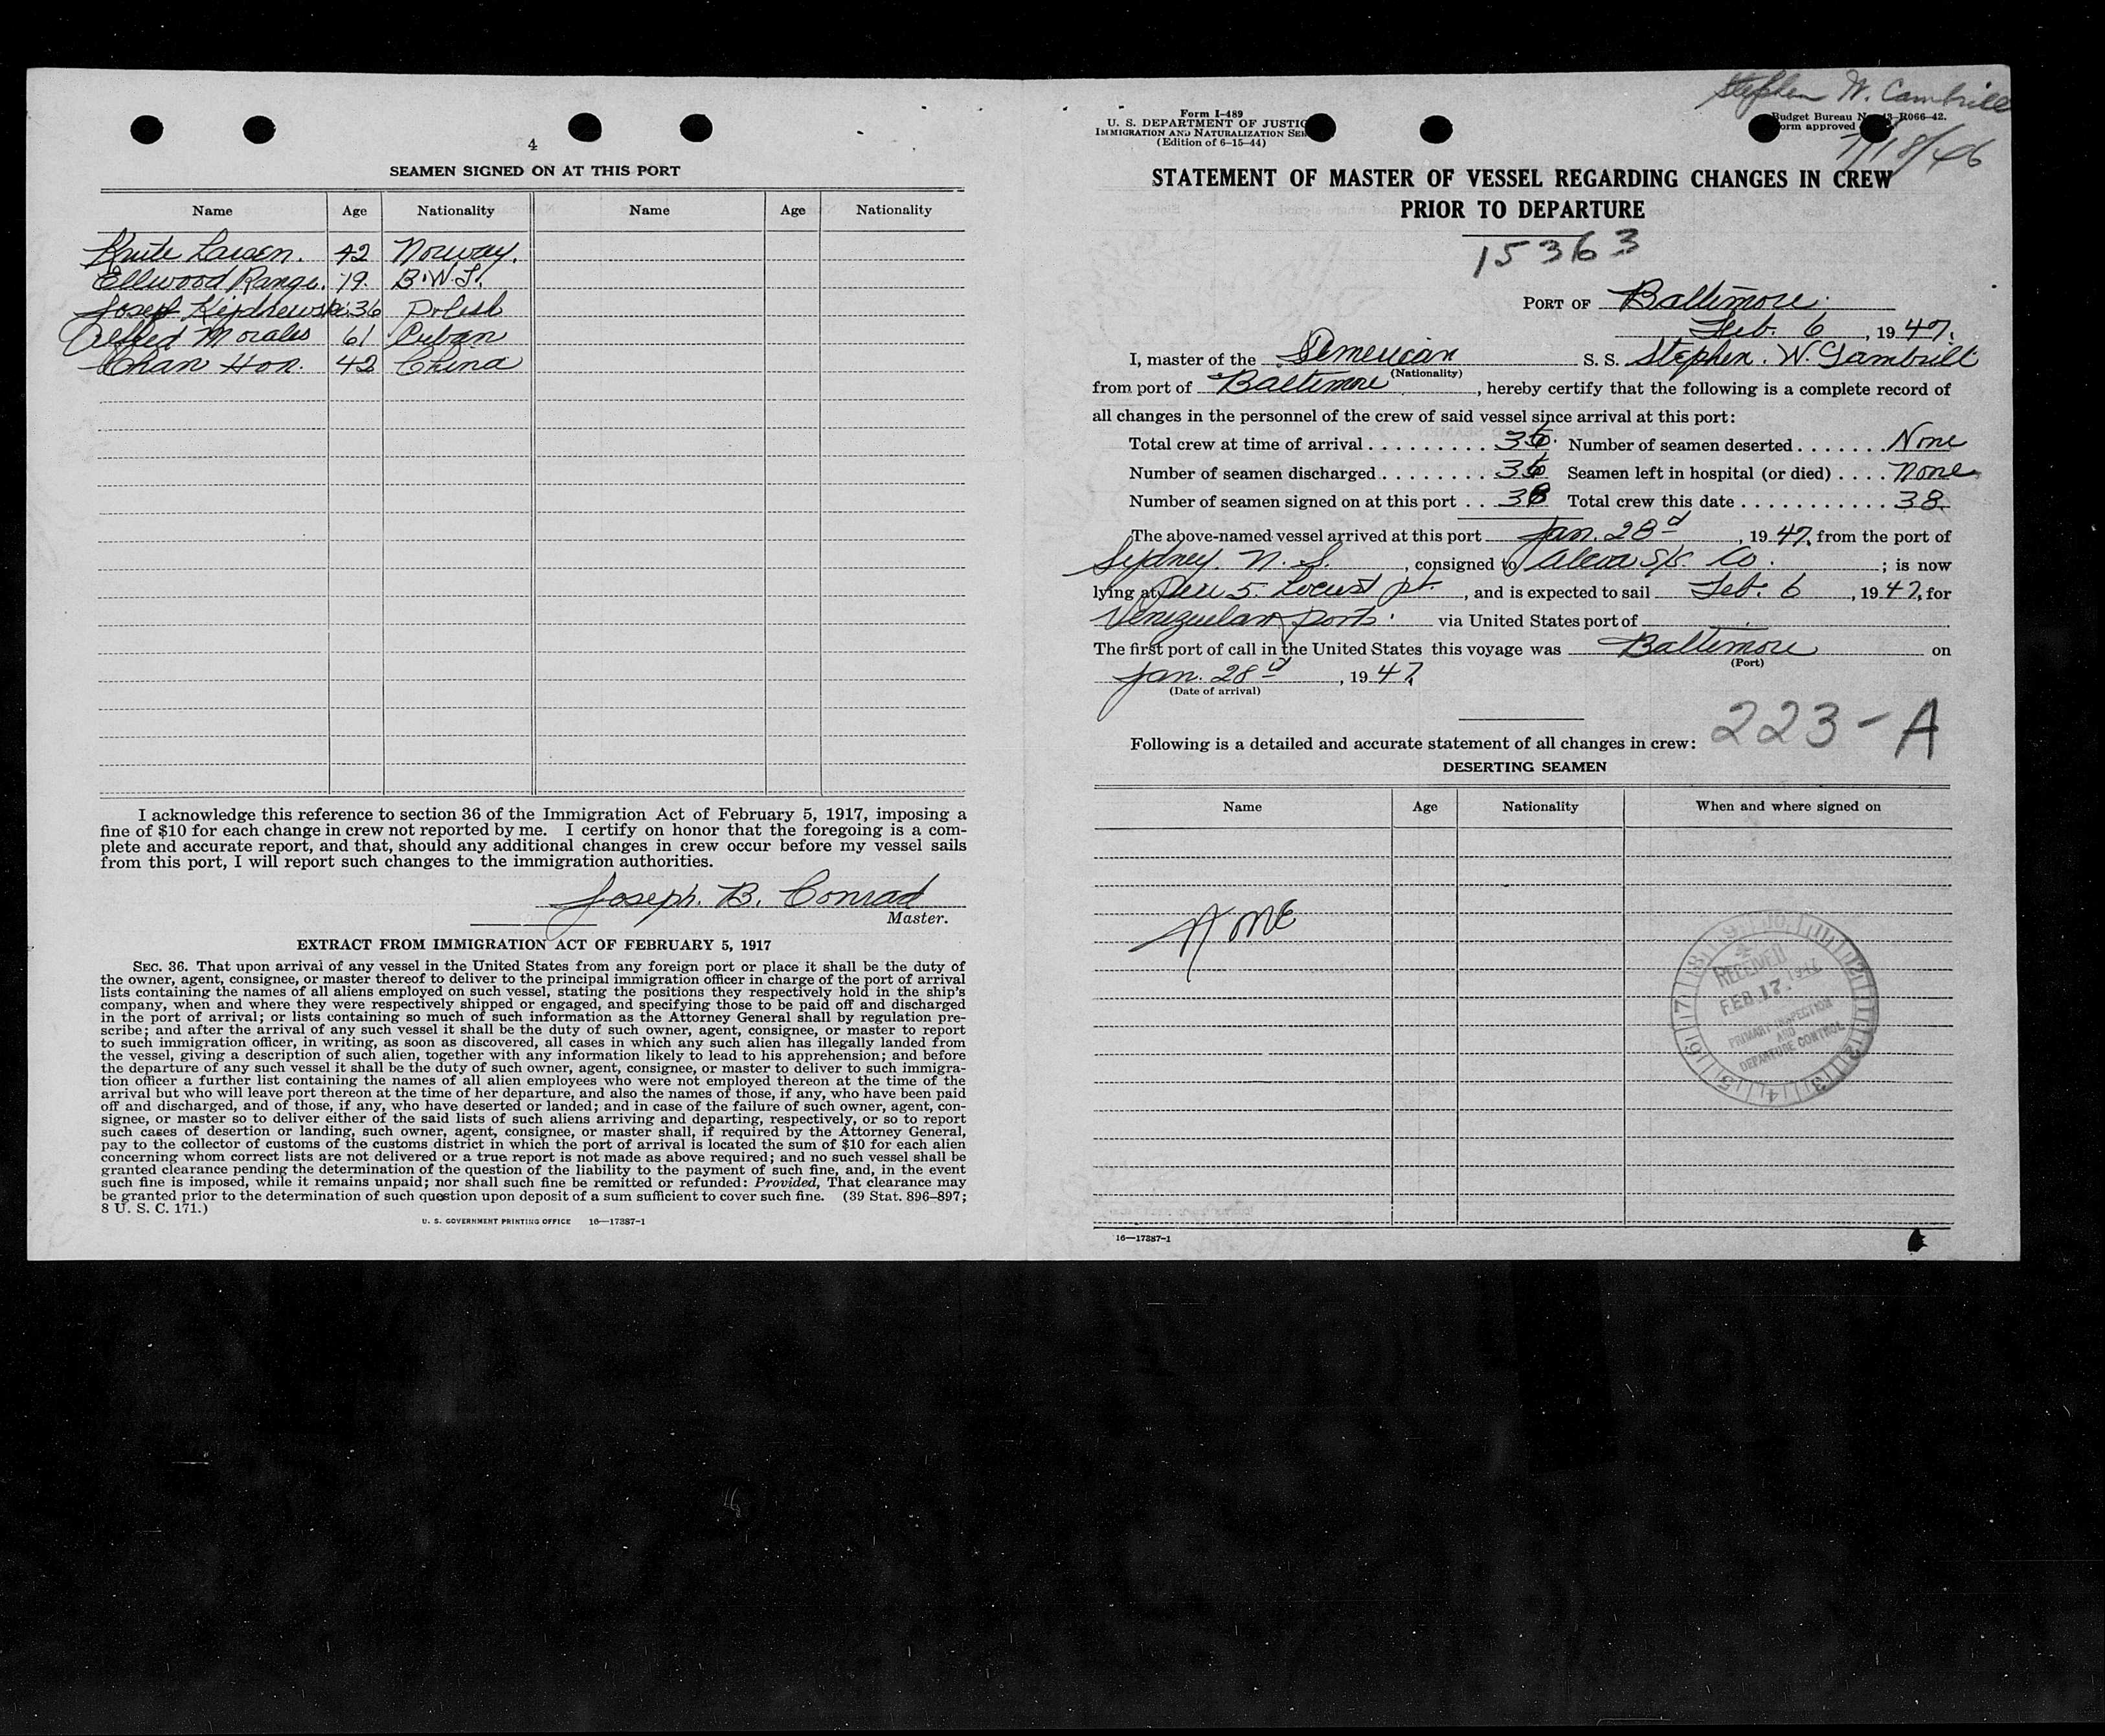 4
SEAMEN SIGNED ON AT THIS PORT
Name Age Nationality Name Age Nationality
Knute Larsen. 42 Norway.
Ellwood Range. 19. B.W.I.
Josep 36 Polish
Alfred Morales 61 Cuban
Chan Hon. 42 China
I acknowledge this reference to section 36 of the Immigration Act of February 5, 1917, imposing a
fine of $10 for each change in crew not reported by me. I certify on honor that the foregoing is a com-
plete and accurate report, and that, should any additional changes in crew occur before my vessel sails
from this port, I will report such changes to the immigration authorities.
Joseph. B. Conrad
Master.
EXTRACT FROM IMMIGRATION ACT OF FEBRUARY 5, 1917
SEC. 36. That upon arrival of any vessel in the United States from any foreign port or place it shall be the duty of
the owner, agent, consignee, or master thereof to deliver to the principal immigration officer in charge of the port of arrival
lists containing the names of all aliens employed on such vessel, stating the positions they respectively hold in the ship's
company, when and where they were respectively shipped or engaged, and specifying those to be paid off and discharged
in the port of arrival; or lists containing so much of such information as the Attorney General shall by regulation pre-
scribe; and after the arrival of any such vessel it shall be the duty of such owner, agent, consignee, or master to report
to such immigration officer, in writing, as soon as discovered, all cases in which any such alien has illegally landed from
the vessel, giving a description of such alien, together with any information likely to lead to his apprehension; and before
the departure of any such vessel it shall be the duty of such owner, agent, consignee, or master to deliver to such immigra-
tion officer a further list containing the names of all alien employees who were not employed thereon at the time of the
arrival but who will leave port thereon at the time of her departure, and also the names of those, if any, who have been paid
off and discharged, and of those, if any, who have deserted or landed; and in case of the failure of such owner, agent, con-
signee, or master so to deliver either of the said lists of such aliens arriving and departing, respectively, or so to report
such cases of desertion or landing, such owner, agent, consignee, or master shall, if required by the Attorney General,
pay to the collector of customs of the customs district in which the port of arrival is located the sum of $10 for each alien
concerning whom correct lists are not delivered or a true report is not made as above required; and no such vessel shall be
granted clearance pending the determination of the question of the liability to the payment of such fine, and, in the event
such fine is imposed, while it remains unpaid; nor shall such fine be remitted or refunded: Provided, That clearance may
be granted prior to the determination of such question upon deposit of a sum sufficient to cover such fine. (39 Stat. 896–897;
8 U. S. C. 171.)
U. S. GOVERNMENT PRINTING OFFICE 16—17387-1
Stephen W. Cambrill
7/18/46
Form I-489
U. S. DEPARTMENT OF JUSTIC
IMMIGRATION AND NATURALIZATION SER
(Edition of 6-15-44)
Budget Bureau No. 43-R066-42.
orm approved
STATEMENT OF MASTER OF VESSEL REGARDING CHANGES IN CREW
PRIOR TO DEPARTURE
15363
PORT OF Baltimore.
Feb. 6, 1947.
I, master of the American S. S. Stephen. W. Gambrill
(Nationality)
from port of Baltimore, hereby certify that the following is a complete record of
all changes in the personnel of the crew of said vessel since arrival at this port:
Total crew at time of arrival 36. Number of seamen deserted None
Number of seamen discharged 36 Seamen left in hospital (or died) None
Number of seamen signed on at this port 38 Total crew this date 38.
The above-named vessel arrived at this port Jan. 28d, 1947, from the port of
Sydney. N. S., consigned to Alcoa S/S. Co.; is now
lying at Pier 5. Locust pt., and is expected to sail Feb. 6, 1947, for
Venezuelan ports. via United States port of
The first port of call in the United States this voyage was Baltimore on
(Port)
Jan. 28d, 1947
(Date of arrival)
223-A
Following is a detailed and accurate statement of all changes in crew:
DESERTING SEAMEN
Name Age Nationality When and where signed on
NONE
RECEIVED
FEB 17 1947
PRIMARY INSPECTION
AND
DEPARTURE CONTROL
16—17387-1